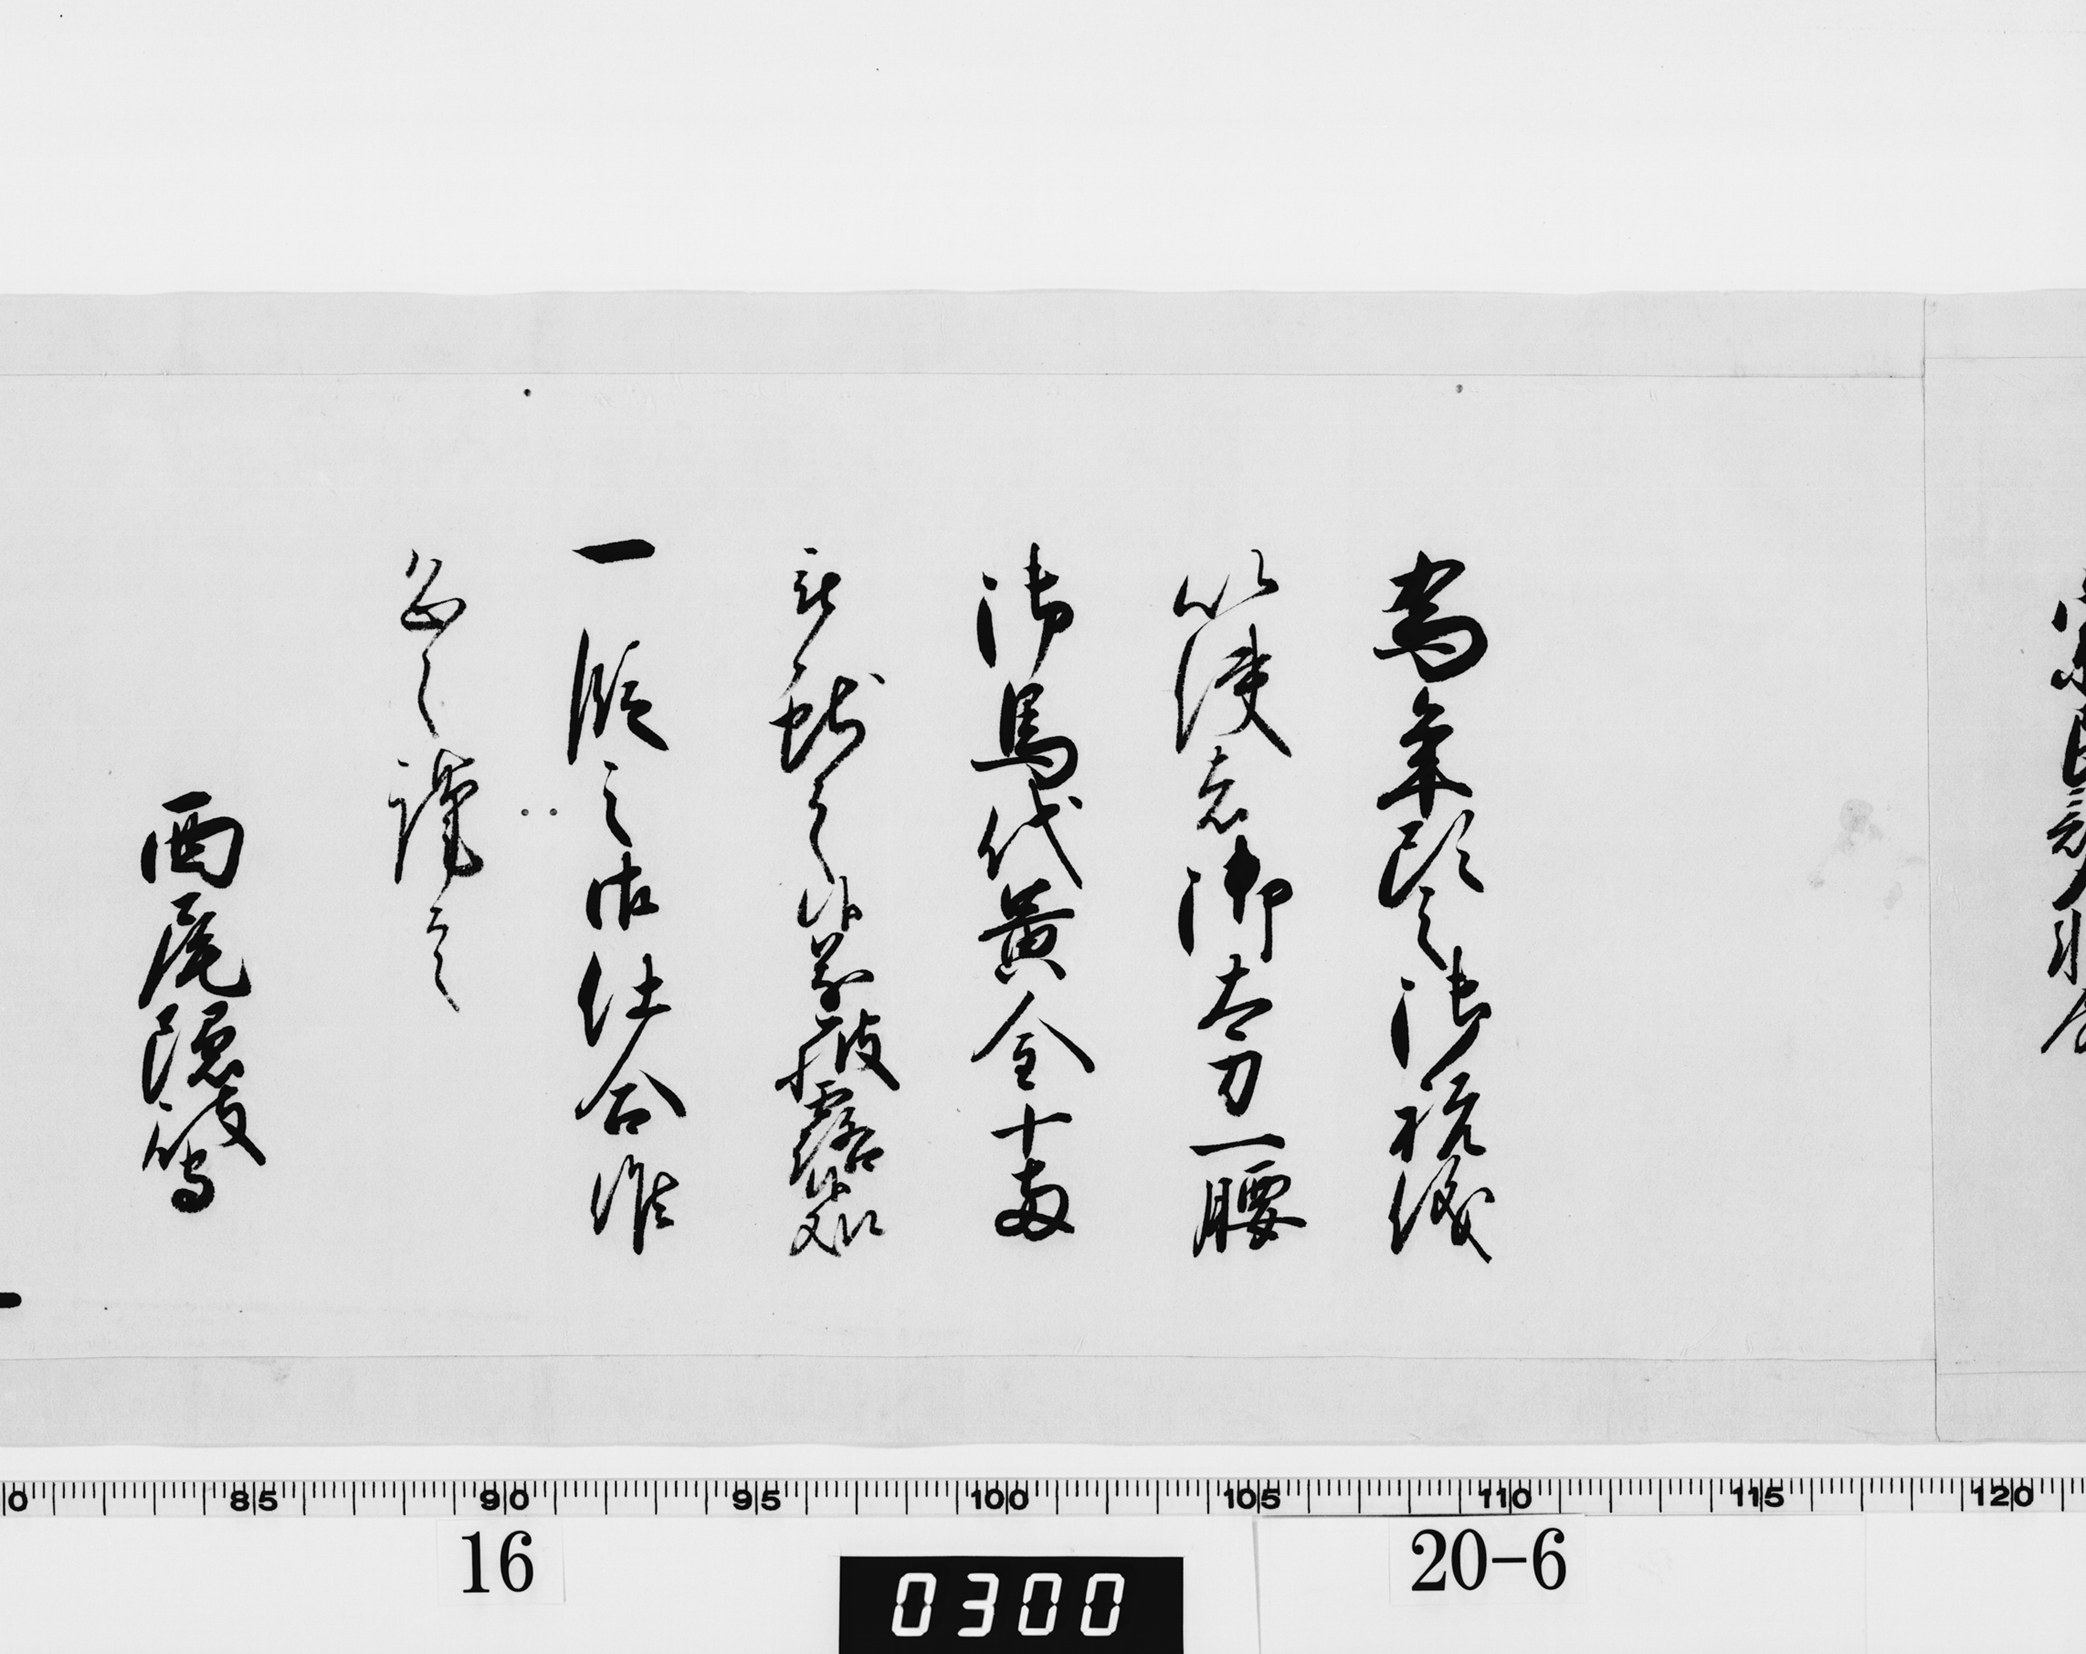 為年頭之御祝儀
以使者御太刀一腰
御馬代黄金十両
被献之候遂披露候処
一段之御仕合候
恐々謹言
西尾隠岐守
0 85 90 95 100 105 110 115 120
16 20-6
0300